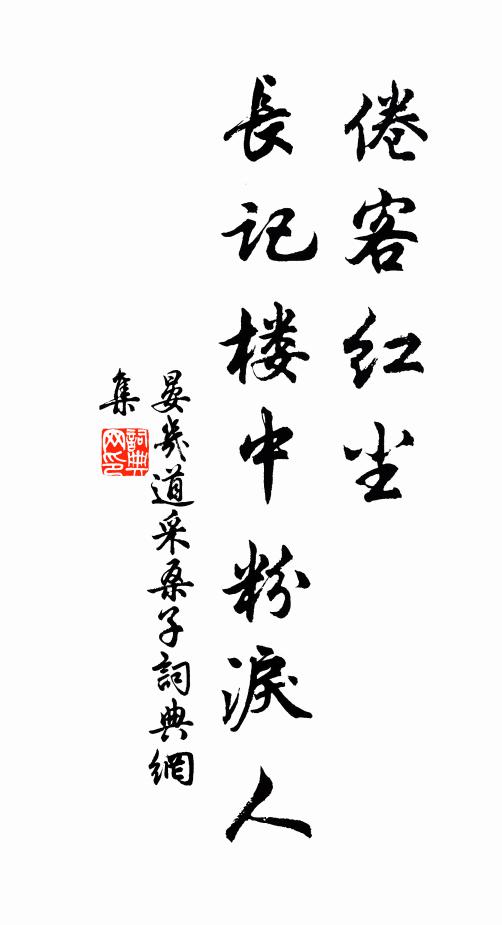 倦客红尘
長记楼中粉淚人
晏幾道采桑子詞典網
集
詞典
网印